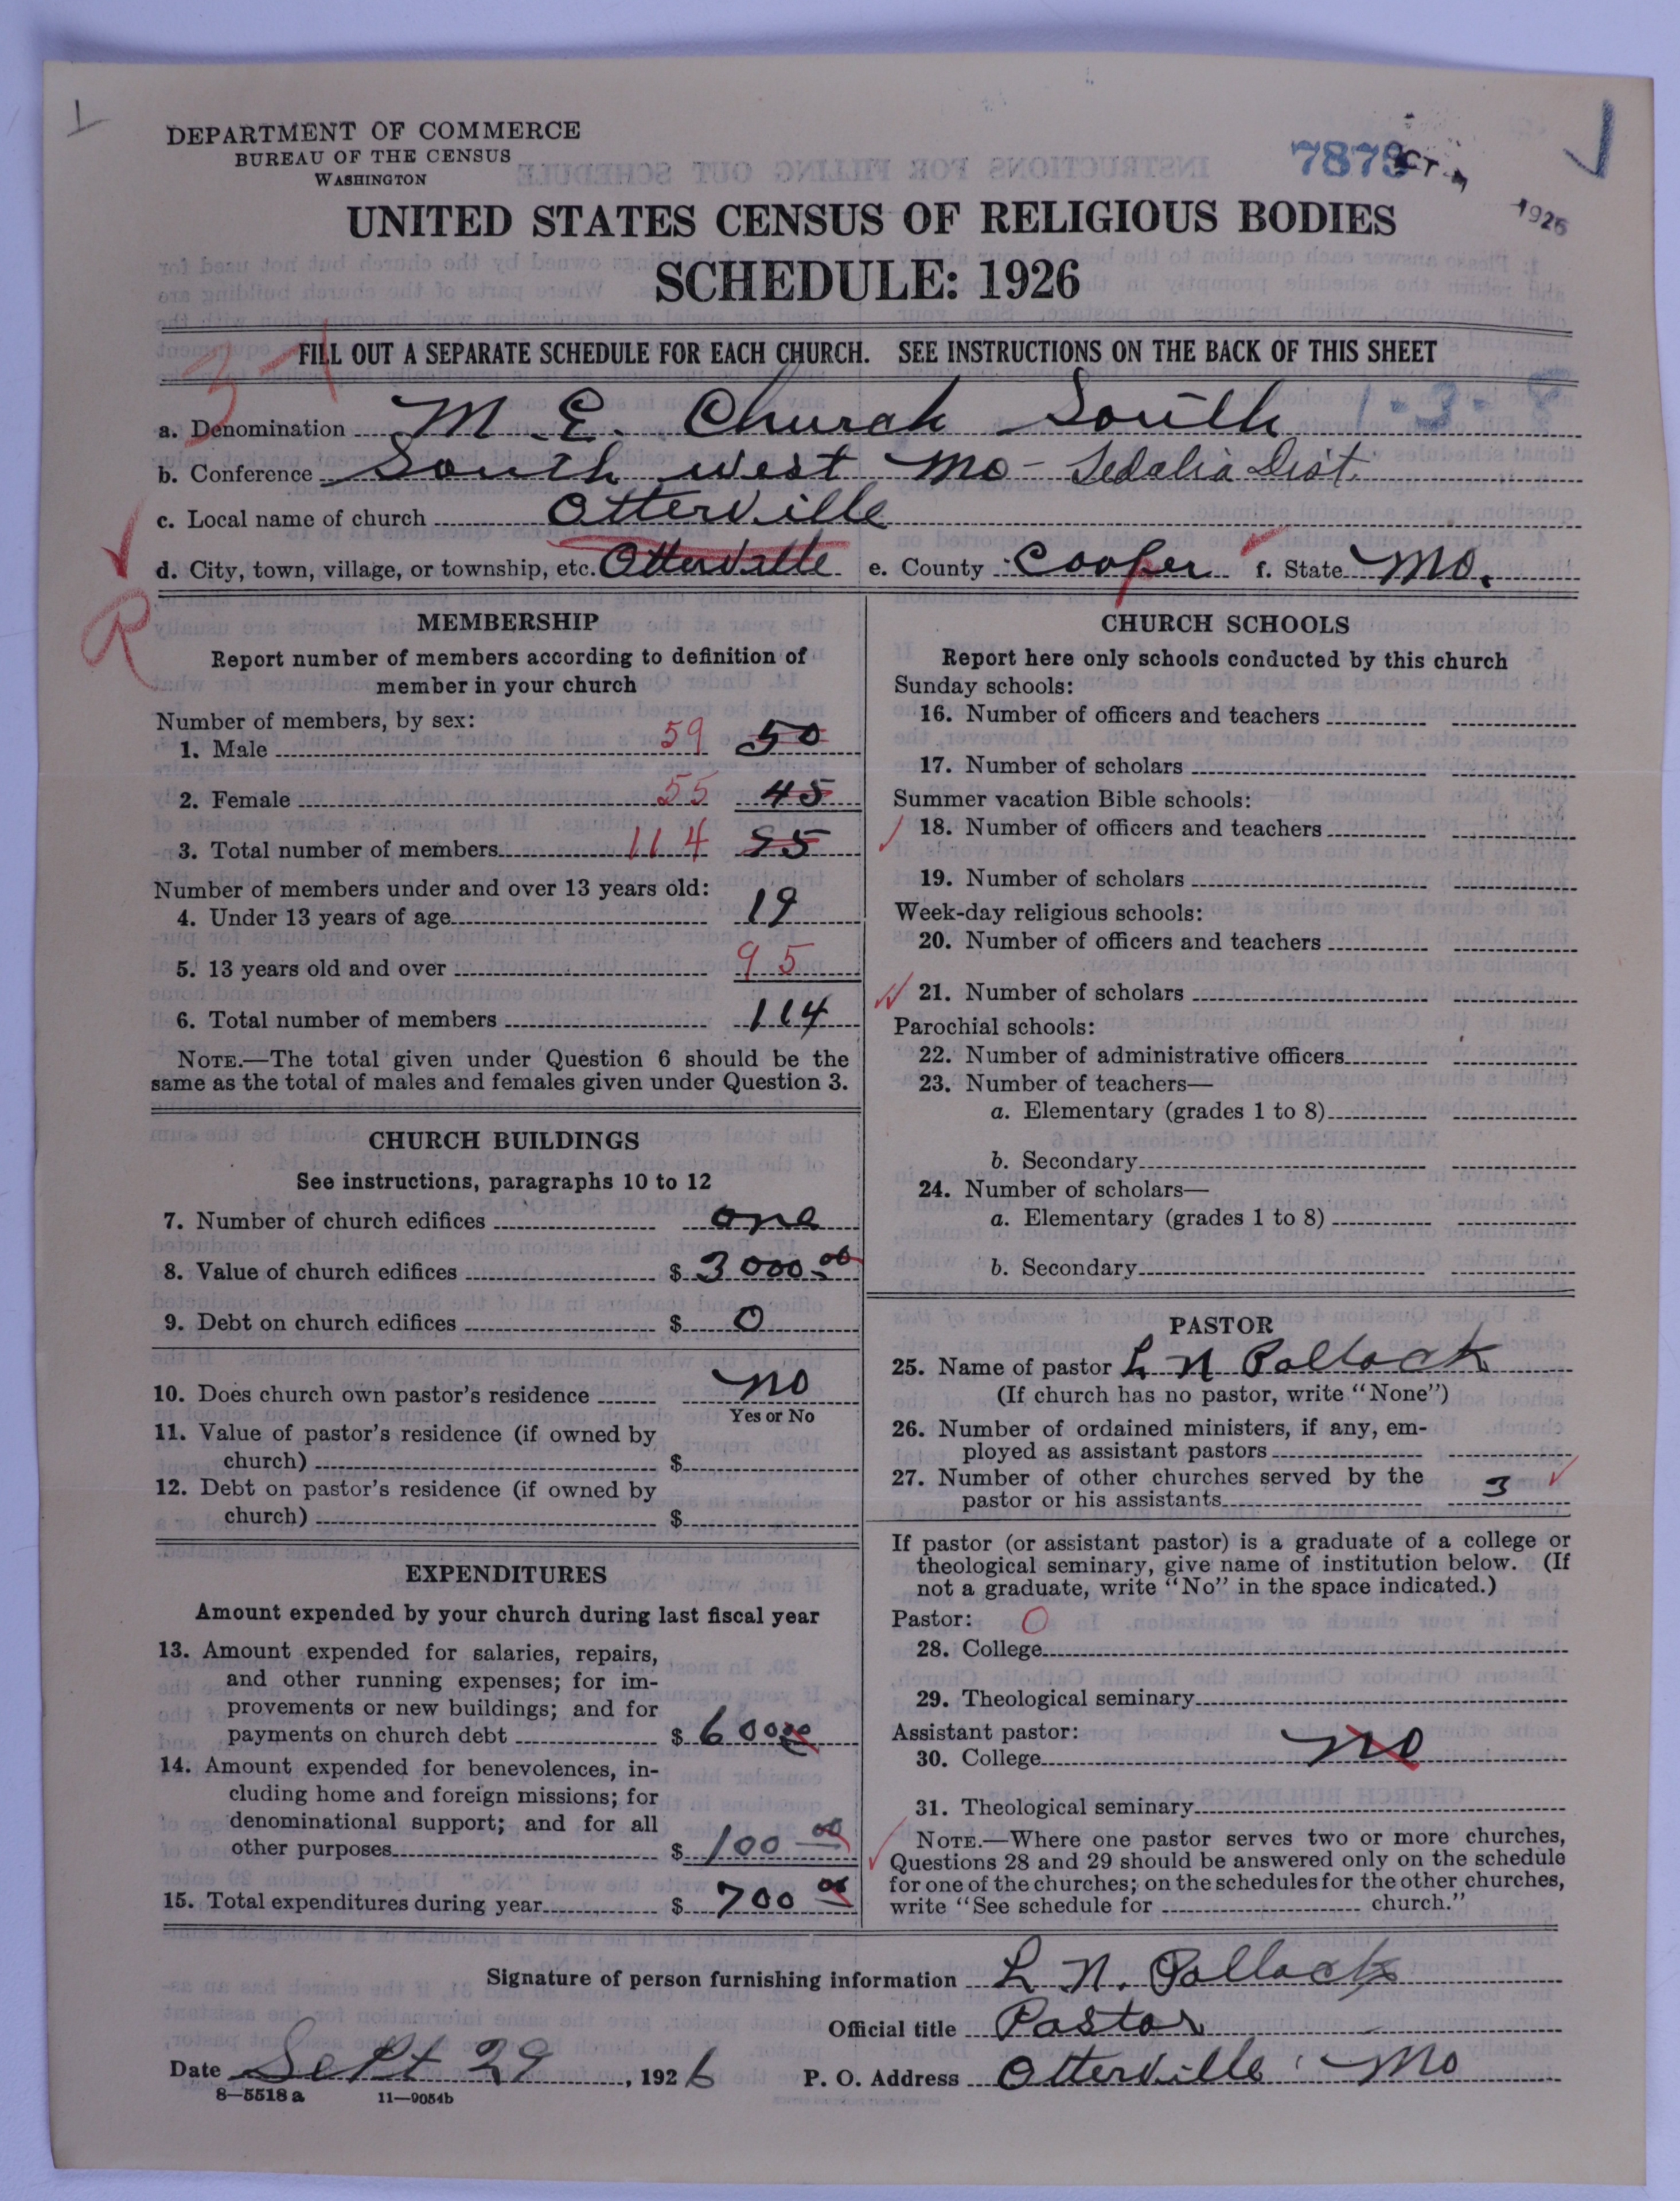 DEPARTMENT OF COMMERCE
BUREAU OF THE CENSUS
WASHINGTON
7873
OCT
1926
UNITED STATES CENSUS OF RELIGIOUS BODIES
SCHEDULE: 1926
3-1
FILL OUT A SEPARATE SCHEDULE FOR EACH CHURCH. SEE INSTRUCTIONS ON THE BACK OF THIS SHEET
a. Denomination M. E. Church South
b. Conference South west Mo - Sedalia Dist.
c. Local name of church Otterville
d. City, town, village, or township, etc. Otterville e. County Cooper f. State Mo.
R
MEMBERSHIP
Report number of members according to definition of
member in your church
Number of members, by sex:
1. Male 59 50
2. Female 55 45
3. Total number of members 114 95
Number of members under and over 13 years old:
4. Under 13 years of age 19
5. 13 years old and over 95
6. Total number of members 114
NOTE.—The total given under Question 6 should be the
same as the total of males and females given under Question 3.
CHURCH BUILDINGS
See instructions, paragraphs 10 to 12
7. Number of church edifices one
8. Value of church edifices $ 3000 00
9. Debt on church edifices $ 0
10. Does church own pastor's residence no
Yes or No
11. Value of pastor's residence (if owned by
church) $
12. Debt on pastor's residence (if owned by
church) $
EXPENDITURES
Amount expended by your church during last fiscal year
13. Amount expended for salaries, repairs,
and other running expenses; for im-
provements or new buildings; and for
payments on church debt $ 600 00
14. Amount expended for benevolences, in-
cluding home and foreign missions; for
denominational support; and for all
other purposes $ 100 00
15. Total expenditures during year $ 700 00
CHURCH SCHOOLS
Report here only schools conducted by this church
Sunday schools:
16. Number of officers and teachers
17. Number of scholars
Summer vacation Bible schools:
18. Number of officers and teachers
19. Number of scholars
Week-day religious schools:
20. Number of officers and teachers
21. Number of scholars
Parochial schools:
22. Number of administrative officers
23. Number of teachers—
a. Elementary (grades 1 to 8)
b. Secondary
24. Number of scholars—
a. Elementary (grades 1 to 8)
b. Secondary
PASTOR
25. Name of pastor L N Pollock
(If church has no pastor, write "None")
26. Number of ordained ministers, if any, em-
ployed as assistant pastors
27. Number of other churches served by the
pastor or his assistants 3
If pastor (or assistant pastor) is a graduate of a college or
theological seminary, give name of institution below. (If
not a graduate, write "No" in the space indicated.)
Pastor: O
28. College
29. Theological seminary
Assistant pastor:
30. College no
31. Theological seminary
NOTE.—Where one pastor serves two or more churches,
Questions 28 and 29 should be answered only on the schedule
for one of the churches; on the schedules for the other churches,
write "See schedule for church."
Signature of person furnishing information L. N. Pollock
Official title Pastor
Date Sept 29, 1926 P. O. Address Otterville Mo
8—5518 a 11—9054b